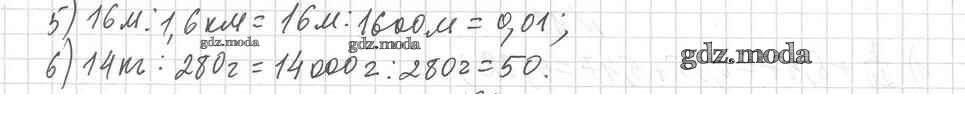 5) 16м : 1,6км = 16м : 1600м = 0,01;
gdz.moda gdz.moda
6) 14кг : 280г = 14000г : 280г = 50.
gdz.moda